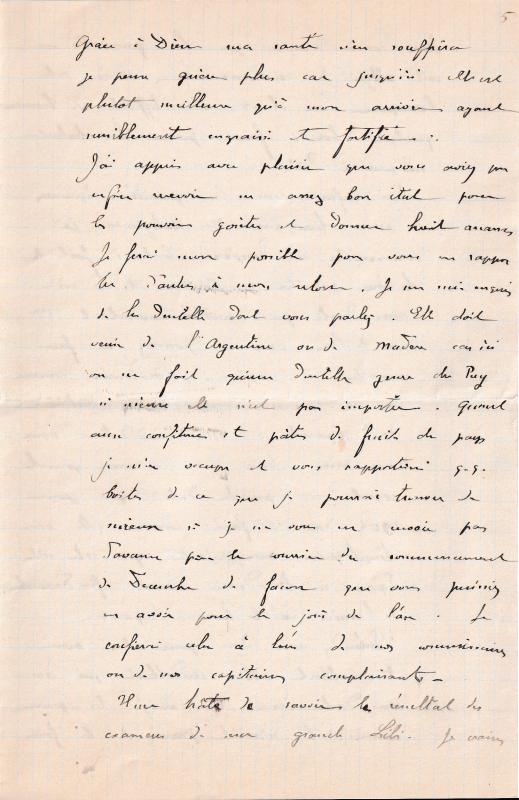 5
Grâce à Dieu ma santé n'en souffrira
je pense guère plus car jusqu'ici elle est
plutot meilleure qu'à mon arrivée ayant
sensiblement engraissé et fortifié . .
J'ai appris avec plaisir que vous aviez pu
enfin recevoir en assez bon état pour
les pouvoir goûter et donner huit ananas
Je ferai mon possible pour vous en rappor
ter d'autres à mon retour . Je me suis enquis
de la dentelle dont vous parlez . Elle doit
venir de l'Argentine ou de Madère car ici
on ne fait qu'une dentelle genre du Puy
si même elle n'est pas importée . Quant
aux confitures et pâtes de fruits du pays
je m'en occupe et vous rapporterai q.q.
boites de ce que je pourrai trouver de
mieux si je ne vous en envoie pas
d'avance par le courrier du commencement
de Décembre de façon que vous puissiez
en avoir pour le jour de l'an . Je
confierai cela à l'un de nos commissaires
ou de nos capitaines complaisants -
Il me hâte de savoir le résultat des
examens de ma grande Lili . Je crains